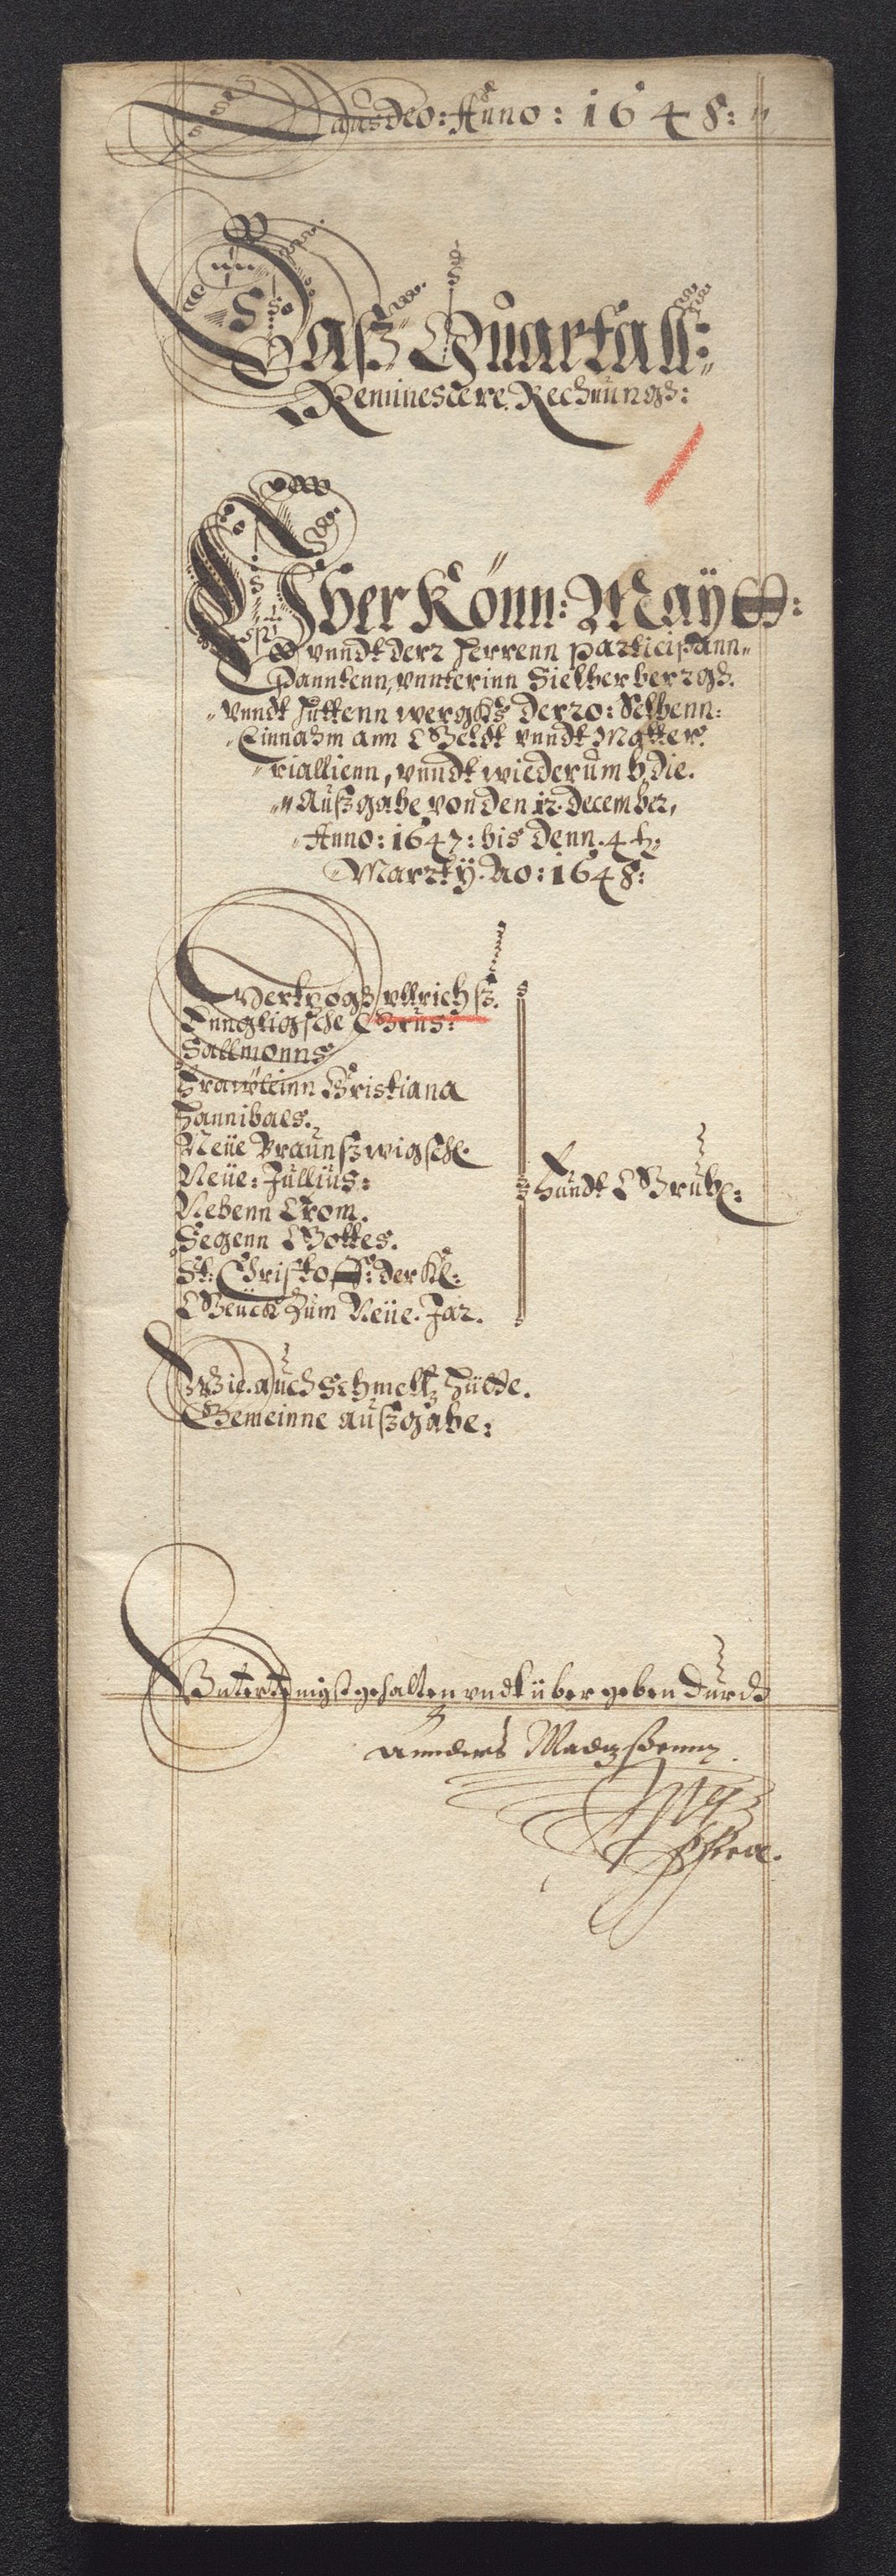 Laus deo: Anno: 1648:
Daß Quartall:
Reminescere. Rechnungh:
Ihr Könn: Maÿtt:
vnndt derr Herrenn participann-
panntenn, vnnter inn Sielber bergh.
vnndt Huttenn wergks derzo: Selbenn:
Einnahm ann Geldt vnndt Matter.
riallienn, vnndt wiederumb die.
Außgabe von den 12. december,
Anno: 1647: bis denn. 4 t.
Martÿ. Ao: 1648:
Hertzogh vllrichß.
Enngligsche Grus:
Sallmonns
Frawleinn Cristiana
Hannibaels.
Neüe Braunßwigsche.
Neüe: Jullius:
Nebenn Crom.
Segenn Gottes.
St: Christoff: der Kl:
Gelück Zum Neüe. Jar.
Fundt Grube:
Wie. auch Schmeltz Hütte.
Gemeinne außgabe:
Vntertenigst gehalten vndt über geben durch
annders Madtzsenn